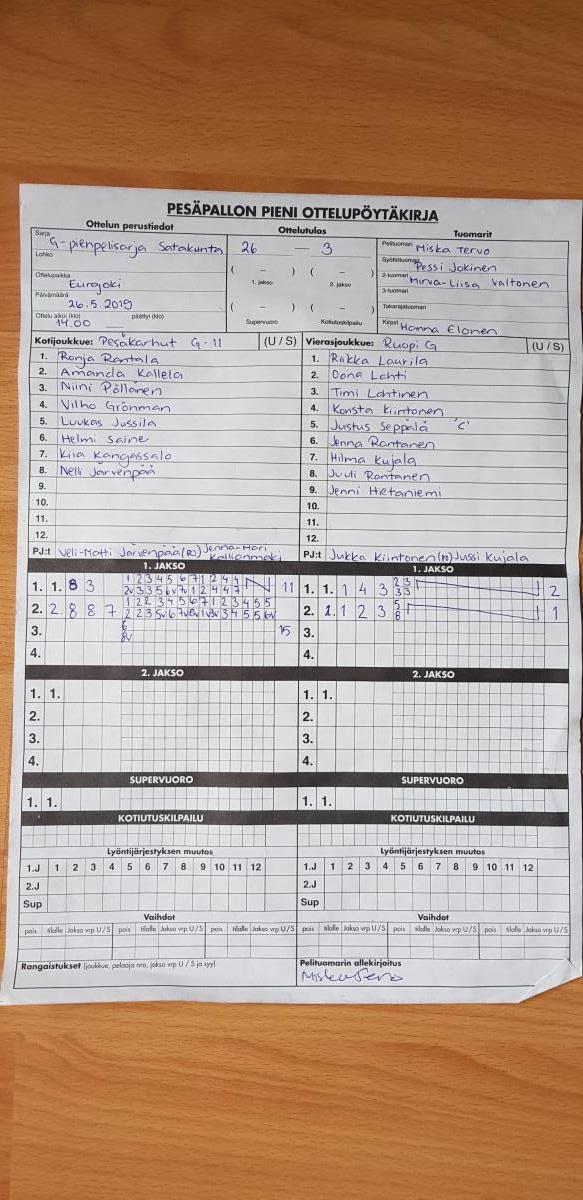 PESÄPALLON PIENI OTTELUPÖYTÄKIRJA
Ottelun perustiedot Ottelutulos Tuomarit
Sarja G-pienpelisarja Satakunta 26 – 3 Pelituomari Miska Tervo
Lohko
Syöttötuomari Pessi Jokinen
( – ) ( – )
1. jakso 2. jakso
Ottelupaikka Eurajoki 2-tuomari Mirva-Liisa Valtonen
3-tuomari
Päivämäärä 26.5.2019 ( – ) ( – ) Takarajatuomari
Ottelu alkoi (klo) 14.00 päättyi (klo) Supervuoro Kotiutuskilpailu Kirjuri Hanna Elonen
Kotijoukkue: Pesäkarhut G-11 (U / S) Vierasjoukkue: Ruopi G (U / S)
1. Ronja Rantala 1. Riikka Laurila
2. Amanda Kallela 2. Oona Lahti
3. Niini Pöllänen 3. Timi Lahtinen
4. Vilho Grönman 4. Konsta Kiintonen
5. Luukas Jussila 5. Justus Seppälä 'C'
6. Helmi Saine 6. Jenna Rantanen
7. Kiia Kangassalo 7. Hilma Kujala
8. Nelli Järvenpää 8. Juuli Rantanen
9. 9. Jenni Hietaniemi
10. 10.
11. 11.
12. 12.
PJ:t Veli-Matti Järvenpää (PJ) Jenna-Mari Kallionmäki PJ:t Jukka Kiintonen (PJ) Jussi Kujala
1. JAKSO 1. JAKSO
1. 1. 8 3 1 2 3 4 5 6 7 1 2 4 4 11 1. 1. 1 4 3 2 3 2
2v 3 3 5 6v 7v 1 2 4 4 7 3 3
2. 2. 8 8 7 1 2 2 3 4 5 6 7 1 2 3 4 5 5 2. 2. 1 2 3 5 1
2 2 3 5v 6 7v 8v 1v 3v 3 4 5 5 6v 8
3. 6 15 3.
8v
4. 4.
2. JAKSO 2. JAKSO
1. 1. 1. 1.
2. 2.
3. 3.
4. 4.
SUPERVUORO SUPERVUORO
1. 1. 1. 1.
KOTIUTUSKILPAILU KOTIUTUSKILPAILU
Lyöntijärjestyksen muutos Lyöntijärjestyksen muutos
1.J 1 2 3 4 5 6 7 8 9 10 11 12 1.J 1 2 3 4 5 6 7 8 9 10 11 12
2.J 2.J
Sup Sup
Vaihdot Vaihdot
pois tilalle Jakso vrp U/S pois tilalle Jakso vrp U/S pois tilalle Jakso vrp U/S pois tilalle Jakso vrp U/S pois tilalle Jakso vrp U/S pois tilalle Jakso vrp U/S
Rangaistukset (joukkue, pelaaja nro, jakso vrp U / S ja syy) Pelituomarin allekirjoitus